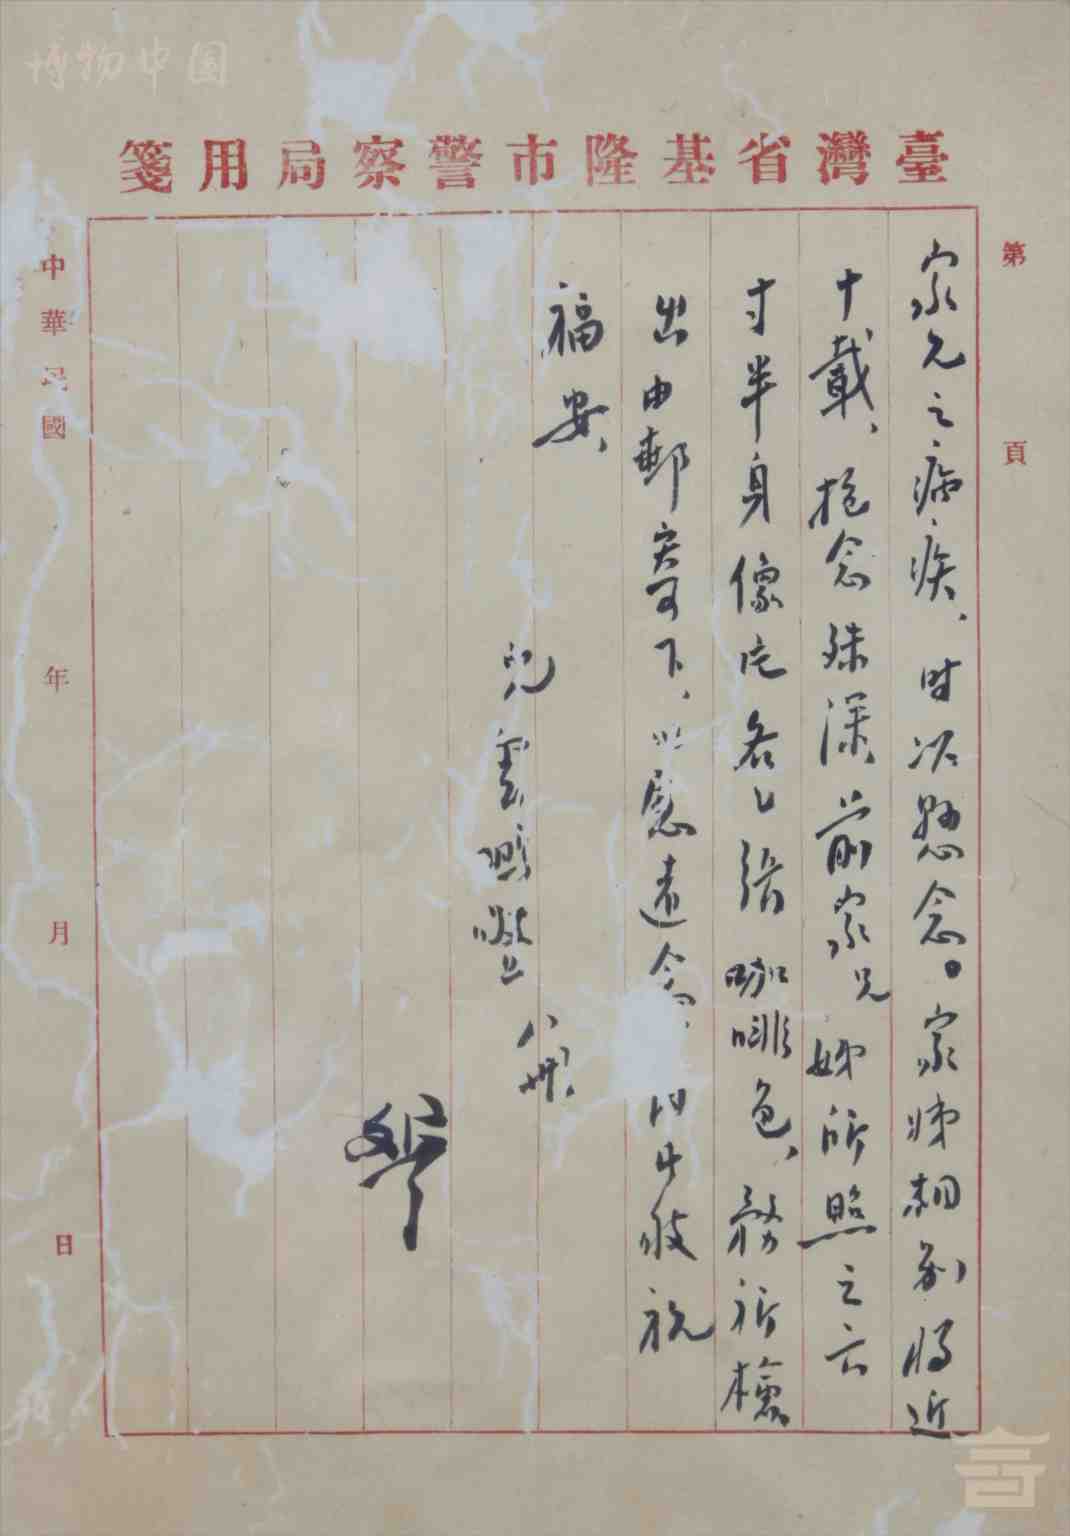 博物中国
臺灣省基隆市警察局用箋
第 頁
家兄之病疾、時以懸念。家姊相別將近
十載、念殊深、前家兄姊所照之六
寸半身像片各乙張咖啡色、務祈檢
出由郵寄下、以慰遠念、此敬祝
福安
兒
八卅
中華民國 年 月 日